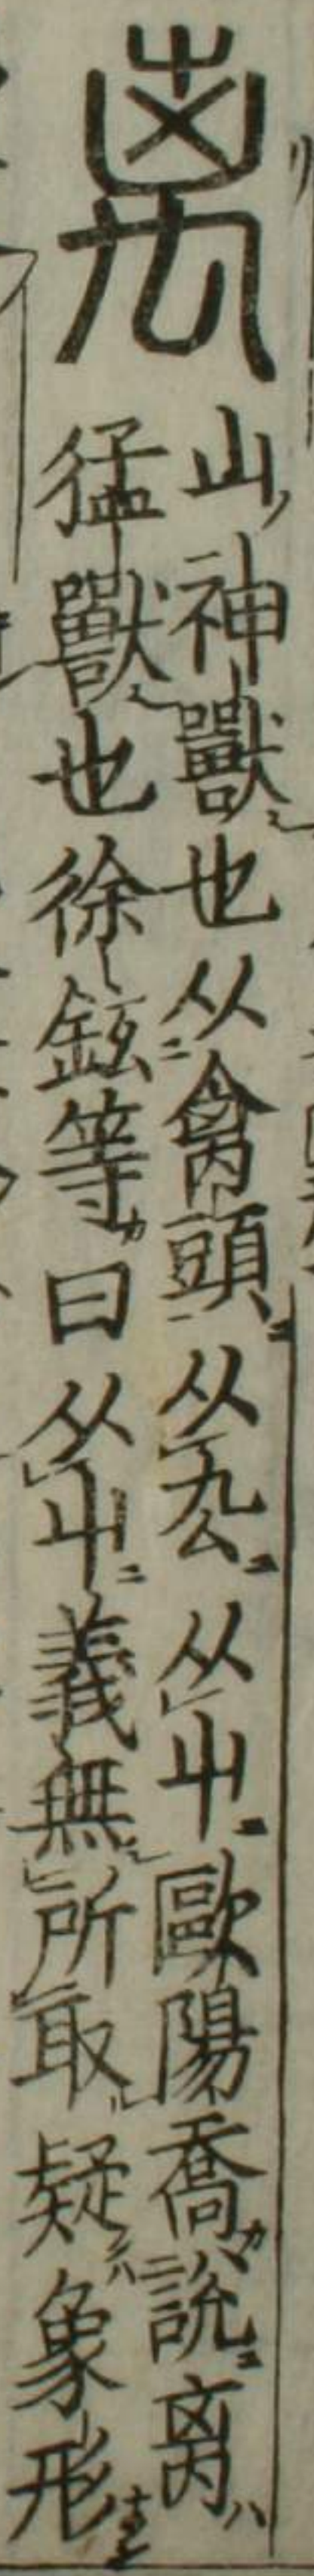 离
山神獸也从禽頭从厹从屮歐陽喬說离
猛獸也徐鉉等曰从屮義無所取疑象形